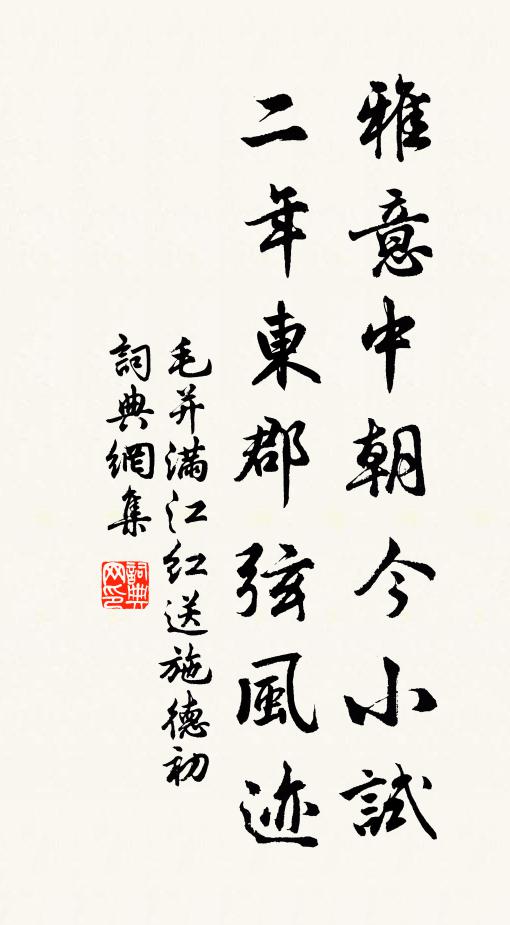 雅意中朝今小試
二年東郡弦風迹
毛并滿江红送施德初
詞典網集
詞典
网印